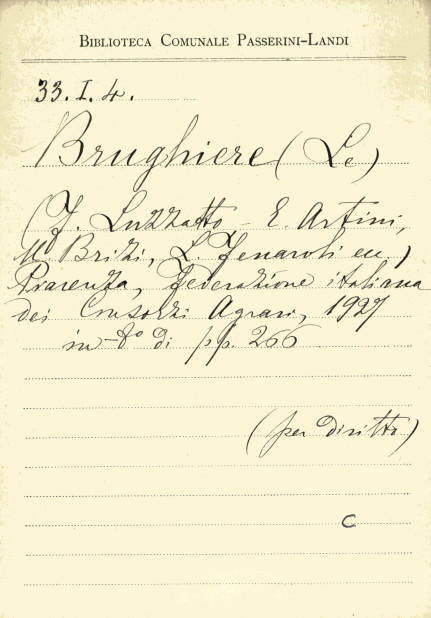 BIBLIOTECA COMUNALE PASSERINI-LANDI
33. I. 4.
Brughiere (Le)
(J. Luzzatto, E. Artini,
U. Brizi, L. Fenaroli ecc.)
Piacenza, Federazione italiana
dei Consorzi Agrari, 1927
in-8° di pp. 266
(per diritto)
C